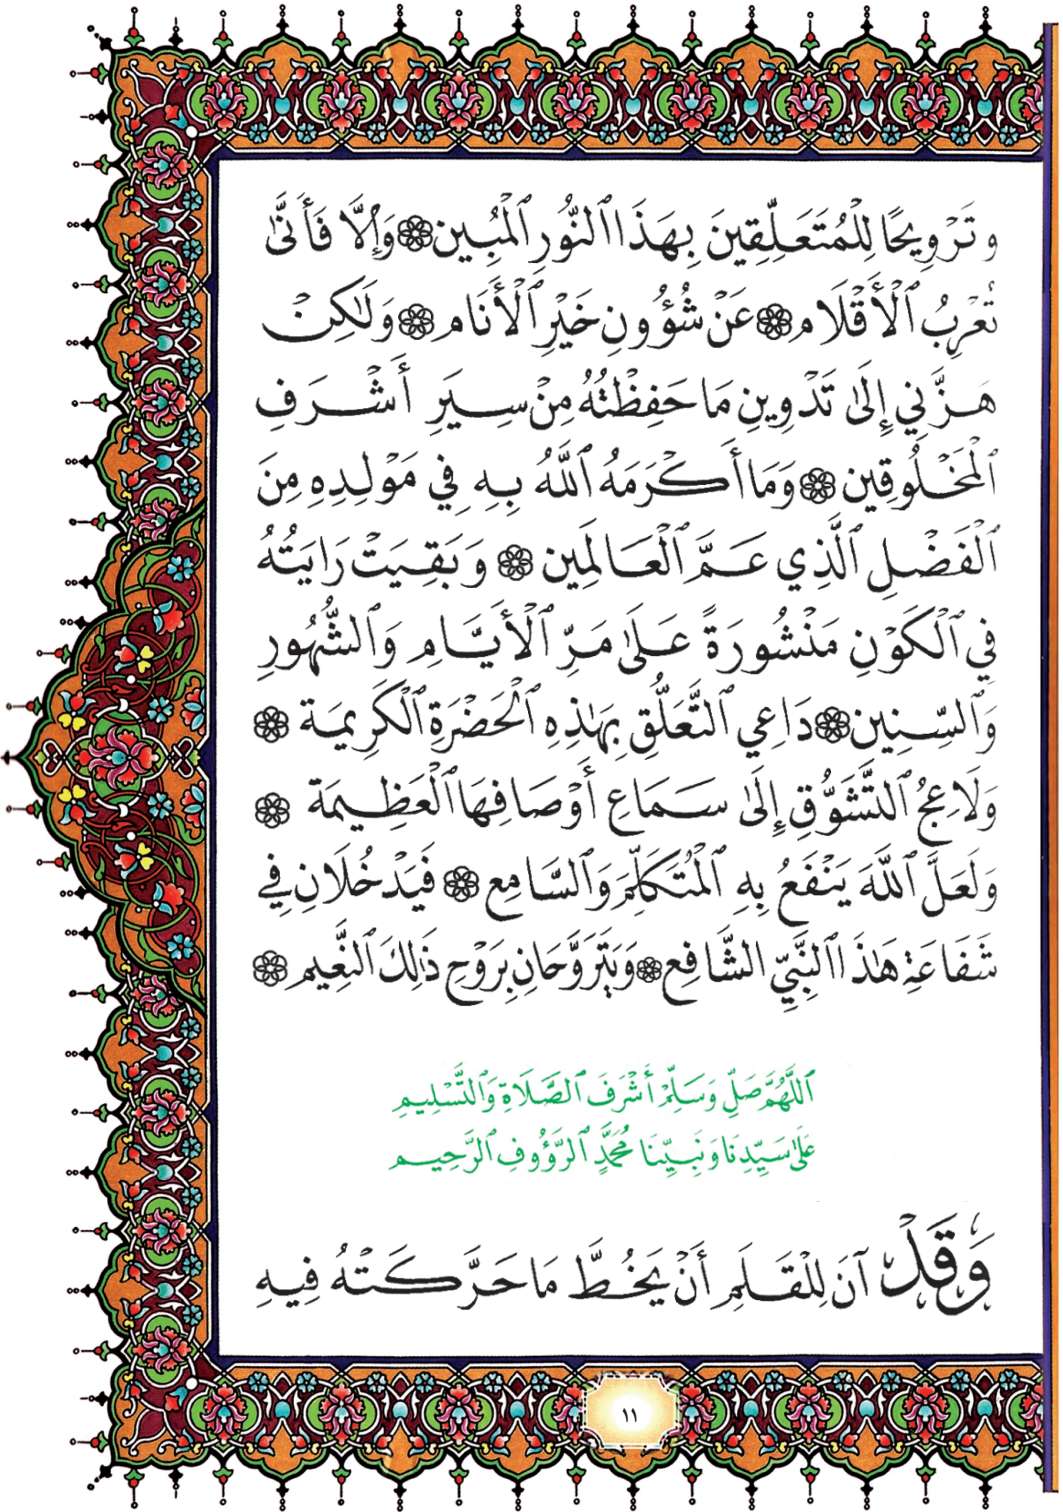 وَتَرْوِيحًا لِلْمُتَعَلِّقِينَ بِهَذَا ٱلنُّورِ ٱلْمُبِين۞وَإِلَّا فَأَنَّىٰ
تُعْرِبُ ٱلْأَقْلَام۞عَنْ شُؤُونِ خَيْرِ ٱلْأَنَام۞وَلَٰكِنْ
هَزَّنِي إِلَىٰ تَدْوِينِ مَا حَفِظْتُهُ مِنْ سِيَرِ أَشْرَفِ
ٱلْمَخْلُوقِين۞وَمَا أَكْرَمَهُ ٱللَّهُ بِهِ فِي مَوْلِدِهِ مِنَ
ٱلْفَضْلِ ٱلَّذِي عَمَّ ٱلْعَالَمِين۞وَبَقِيَتْ رَايَتُهُ
فِي ٱلْكَوْنِ مَنْشُورَةً عَلَىٰ مَرِّ ٱلْأَيَّامِ وَٱلشُّهُورِ
وَٱلسِّنِين۞دَاعِي ٱلتَّعَلُّقِ بِهَٰذِهِ ٱلْحَضْرَةِ ٱلْكَرِيمَة۞
وَلَاعِجُ ٱلتَّشَوُّقِ إِلَىٰ سَمَاعِ أَوْصَافِهَا ٱلْعَظِيمَة۞
وَلَعَلَّ ٱللَّهَ يَنْفَعُ بِهِ ٱلْمُتَكَلِّمَ وَٱلسَّامِع۞فَيَدْخُلَانِ فِي
شَفَاعَةِ هَٰذَا ٱلنَّبِيِّ ٱلشَّافِع۞وَيَتَرَوَّحَانِ بِرَوْحِ ذَٰلِكَ ٱلنَّعِيم۞
ٱللَّهُمَّ صَلِّ وَسَلِّمْ أَشْرَفَ ٱلصَّلَاةِ وَٱلتَّسْلِيمِ
عَلَىٰ سَيِّدِنَا وَنَبِيِّنَا مُحَمَّدٍ ٱلرَّؤُوفِ ٱلرَّحِيمِ
وَقَدْ آنَ لِلْقَلَمِ أَنْ يَخُطَّ مَا حَرَّكَتْهُ فِيهِ
١١